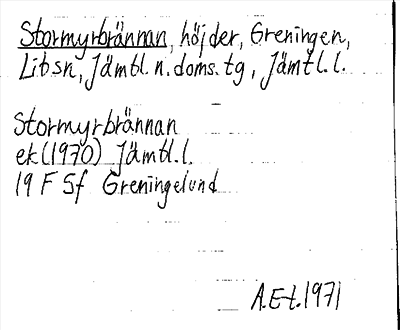 Stormyrbrännan, höjder, Greningen,
Litsn, Jämtl. n. doms. tg, Jämtl. l.
Stormyrbrännan
ek (1970) Jämtl. l.
19 F 5f Greningelund
A.E-t. 1971